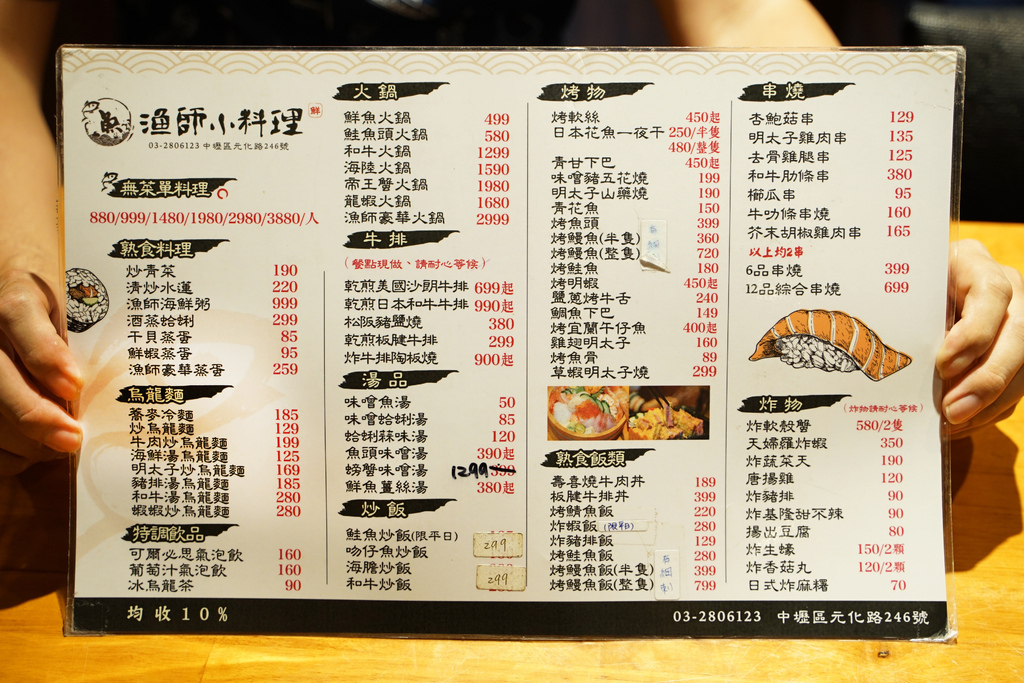 漁師小料理 鮮
03-2806123 中壢區元化路246號
無菜單料理
880/999/1480/1980/2980/3880/人
熟食料理
炒青菜 190
清炒水蓮 220
漁師海鮮粥 999
酒蒸蛤蜊 299
干貝蒸蛋 85
鮮蝦蒸蛋 95
漁師豪華蒸蛋 259
烏龍麵
蕎麥冷麵 185
炒烏龍麵 129
牛肉炒烏龍麵 199
海鮮湯烏龍麵 125
明太子炒烏龍麵 169
豬排湯烏龍麵 185
和牛湯烏龍麵 280
蝦蝦炒烏龍麵 280
特調飲品
可爾必思氣泡飲 160
葡萄汁氣泡飲 160
冰烏龍茶 90
火鍋
鮮魚火鍋 499
鮭魚頭火鍋 580
和牛火鍋 1299
海陸火鍋 1590
帝王蟹火鍋 1980
龍蝦火鍋 1680
漁師豪華火鍋 2999
牛排
(餐點現做、請耐心等候)
乾煎美國沙朗牛排 699起
乾煎日本和牛牛排 990起
松阪豬鹽燒 380
乾煎板腱牛排 299
炸牛排陶板燒 900起
湯品
味噌魚湯 50
味噌蛤蜊湯 85
蛤蜊蒜味湯 120
魚頭味噌湯 390起
螃蟹味噌湯 1299 399
鮮魚薑絲湯 380起
炒飯
鮭魚炒飯(限平日)
吻仔魚炒飯 299
海膽炒飯
和牛炒飯 299
烤物
烤軟絲 450起
日本花魚一夜干 250/半隻
480/整隻
青甘下巴 450起
味噌豬五花燒 199
明太子山藥燒 190
青花魚 150
烤魚頭 399
烤鰻魚(半隻) 360
烤鰻魚(整隻) 720
烤鮭魚 180
烤明蝦 450起
鹽蔥烤牛舌 240
鯛魚下巴 149
烤宜蘭午仔魚 400起
雞翅明太子 160
烤魚骨 89
草蝦明太子燒 299
熟食飯類
壽喜燒牛肉丼 189
板腱牛排丼 399
烤鯖魚飯 220
炸蝦飯 (限平日) 280
炸豬排飯 129
烤鮭魚飯 280
烤鰻魚飯(半隻) 399
烤鰻魚飯(整隻) 799
串燒
杏鮑菇串 129
明太子雞肉串 135
去骨雞腿串 125
和牛肋條串 380
櫛瓜串 95
牛肋條串燒 160
芥末胡椒雞肉串 165
以上約2串
6品串燒 399
12品綜合串燒 699
炸物 (炸物請耐心等候)
炸軟殼蟹 580/2隻
天婦羅炸蝦 350
炸蔬菜天 190
唐揚雞 120
炸豬排 90
炸基隆甜不辣 90
揚出豆腐 80
炸生蠔 150/2顆
炸香菇丸 120/2顆
日式炸麻糬 70
均收10%
03-2806123 中壢區元化路246號